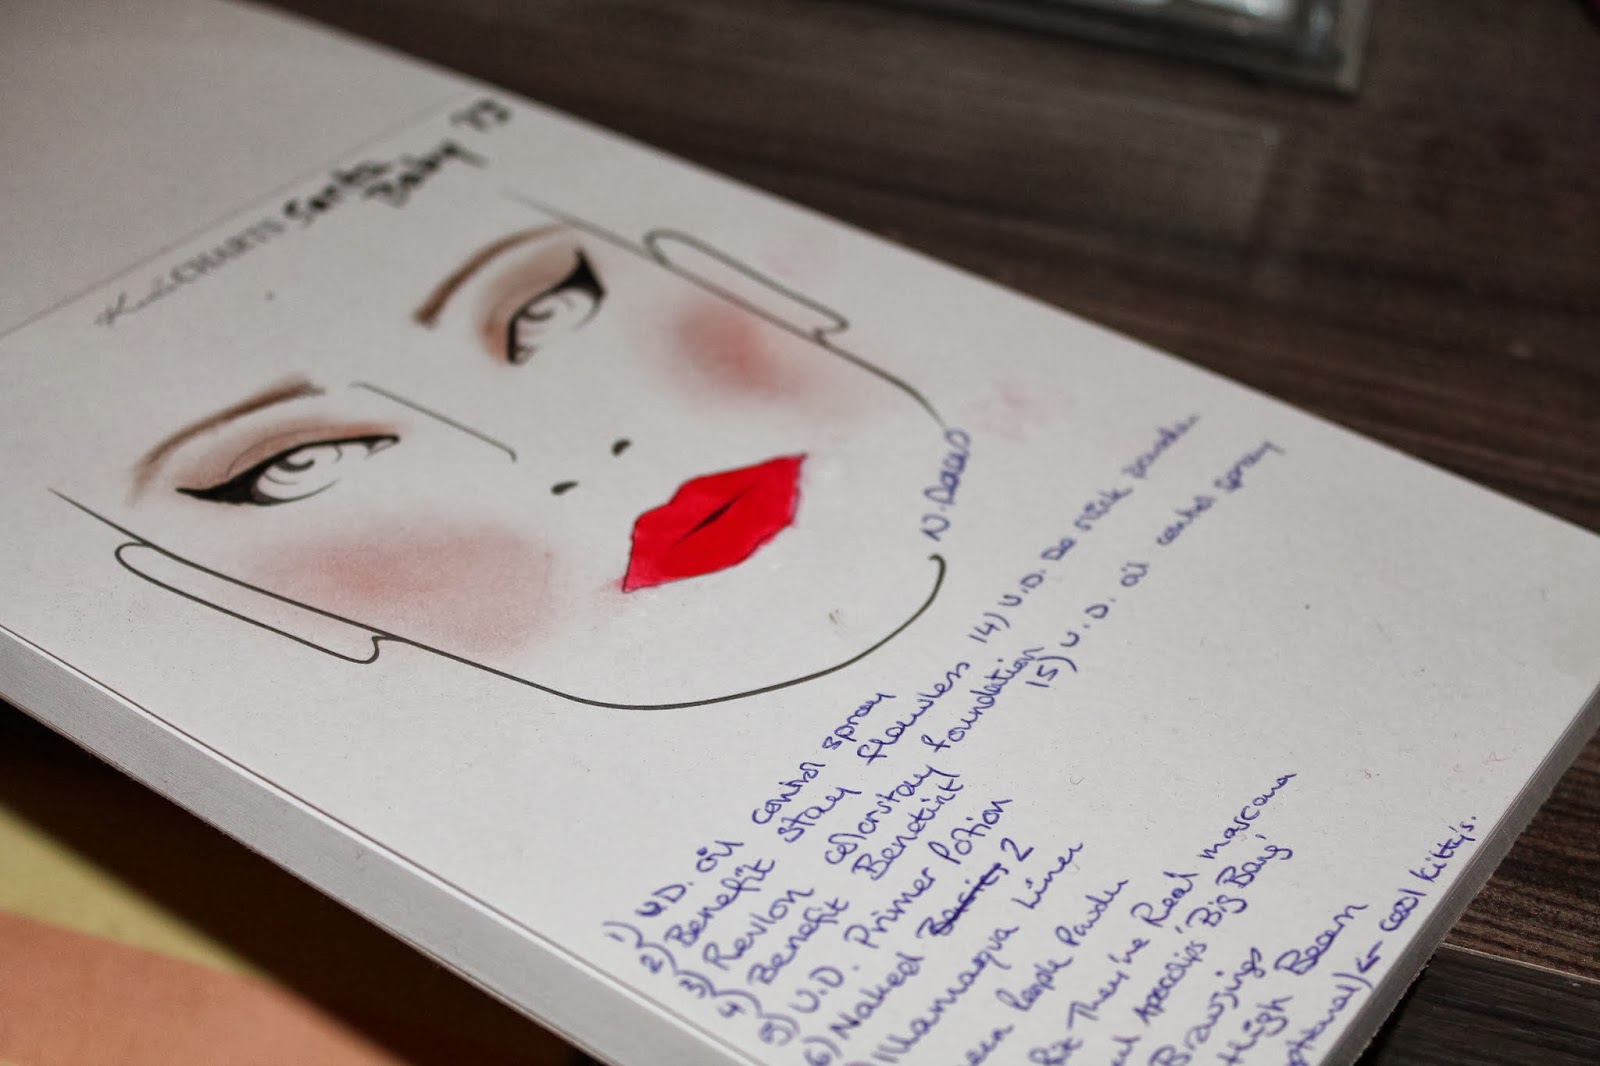 CHARTS Santa Baby 13
N. Dacus
1) U.D. oil control spray
2) Benefit stay flawless
3) Revlon colorstay foundation
4) Benefit Benetint
5) U.D. Primer Potion
6) Naked Basics 2
Illamasqua Liner
People
They're Real mascara
Apocalips 'Big Bang'
Browzings
High Beam
← cool kitty's.
14) U.D. De slick
15) U.D. oil control spray